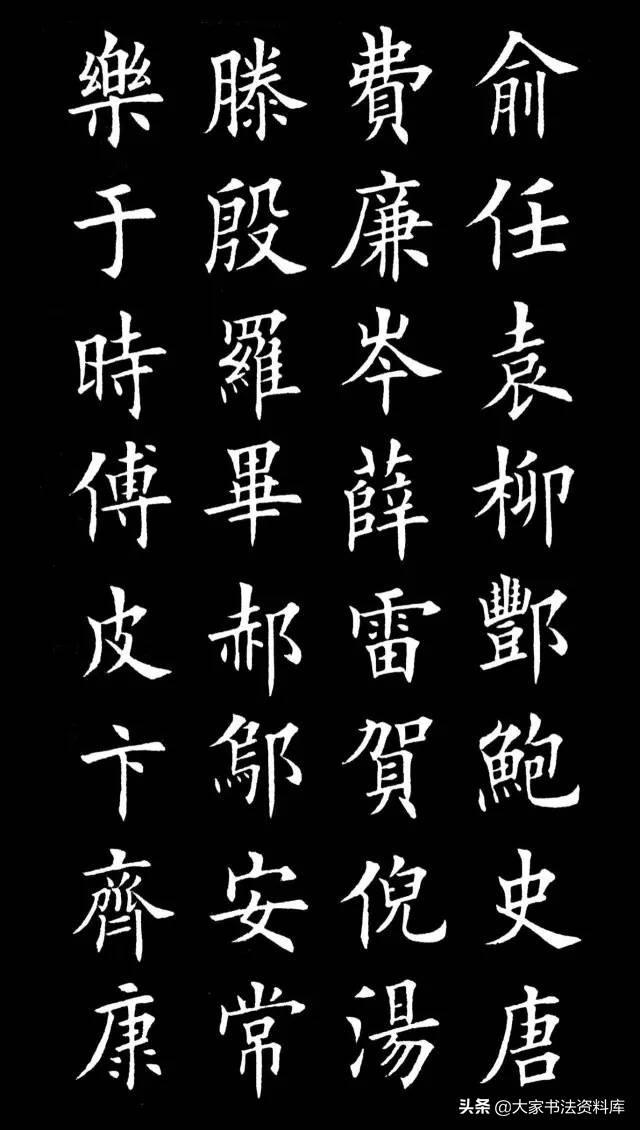 俞任袁柳酆鮑史唐
費廉岑薛雷賀倪湯
滕殷羅畢郝鄔安常
樂于時傅皮卞齊康
头条 @大家书法资料库